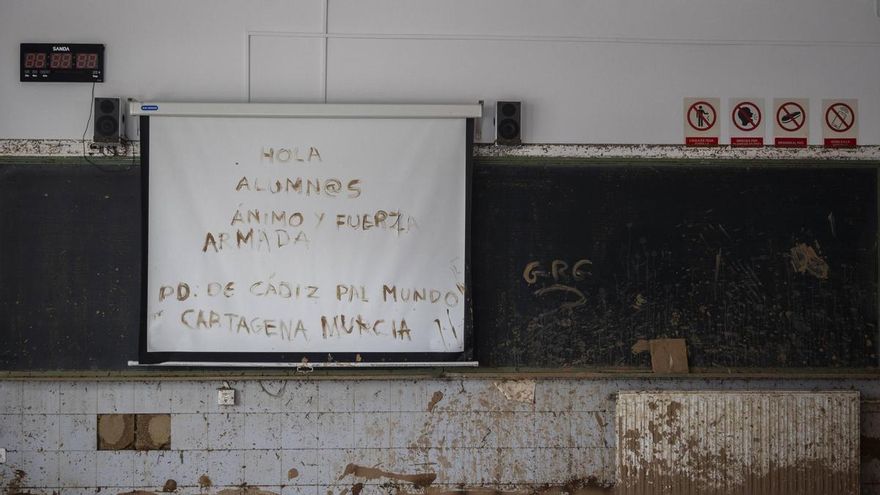 SANDA
88 88 88
HOLA
ALUMN@S
ÁNIMO Y FUERZA
ARMADA
PD: DE CÁDIZ PAL MUNDO
CARTAGENA MURCIA
GRE